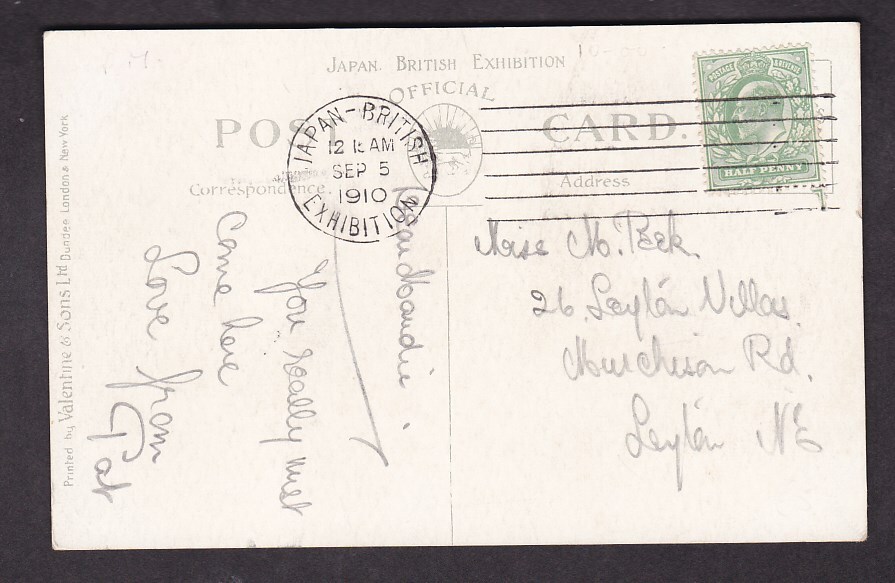 JAPAN. BRITISH EXHIBITION
OFFICIAL
POST CARD.
Correspondence.
Address
JAPAN-BRITISH
EXHIBITION
SEP 5
1910
POSTAGE & REVENUE
HALF PENNY
Dear Maudie.
You really must
come here
Love from
Pat
Miss M. Peek.
26. Leyton Villas.
Murchison Rd.
Leyton NE
Printed by Valentine & Sons Ltd Dundee London & New York